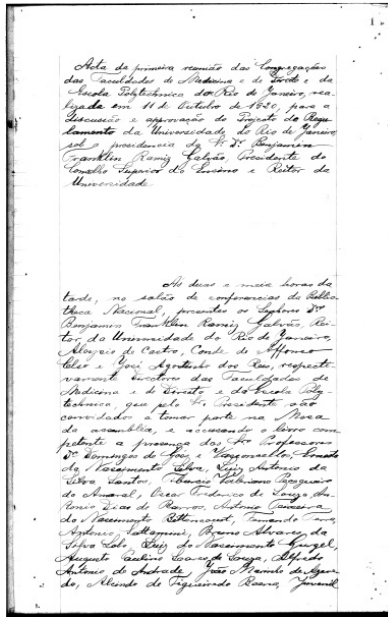 Acta da primeira reunião das Congregações
das Faculdades de Medicina e de Direito e da
Escola Polytechnica do Rio de Janeiro, rea-
lizada em 11 de Outubro de 1920, para a
discussão e approvação do Projecto do Regu-
lamento da Universidade do Rio de Janeiro,
sob a presidencia do Sr. Dr. Benjamin
Franklin Ramiz Galvão, Presidente do
Conselho Superior do Ensino e Reitor da
Universidade
As duas e meia horas da
tarde, no salão de conferencias da Biblio-
theca Nacional, presentes os Senhores Drs
Benjamin Franklin Ramiz Galvão, Rei-
tor da Universidade do Rio de Janeiro,
Aloysio de Castro, Conde de Affonso
Celso e José Agostinho dos Reis, respecti-
vamente directores das Faculdades de
Medicina e de Direito e da Escola Poly-
technica, que pelo Sr. Presidente são
convidados a tomar parte na Mesa
da assembléa, e accusando o livro com-
petente a presença dos Srs Professores
Drs Domingos de Góes e Vasconcellos, Ernesto
do Nascimento Silva, Luiz Antonio da
Silva Santos, Tiburcio Valeriano Pecegueiro
do Amaral, Oscar Frederico de Souza, An-
tonio Dias de Barros, Antonio
do Nascimento Bittencourt, Fernando
Antonio Sattamini, Bruno Alvares da
Silva Lobo, Luiz do Nascimento Gurgel,
Augusto Paulino Soares de Souza, Alfredo
Antonio de Andrade, João Marinho de Azeve-
do, Alcindo de Figueiredo Baena, Juvenil